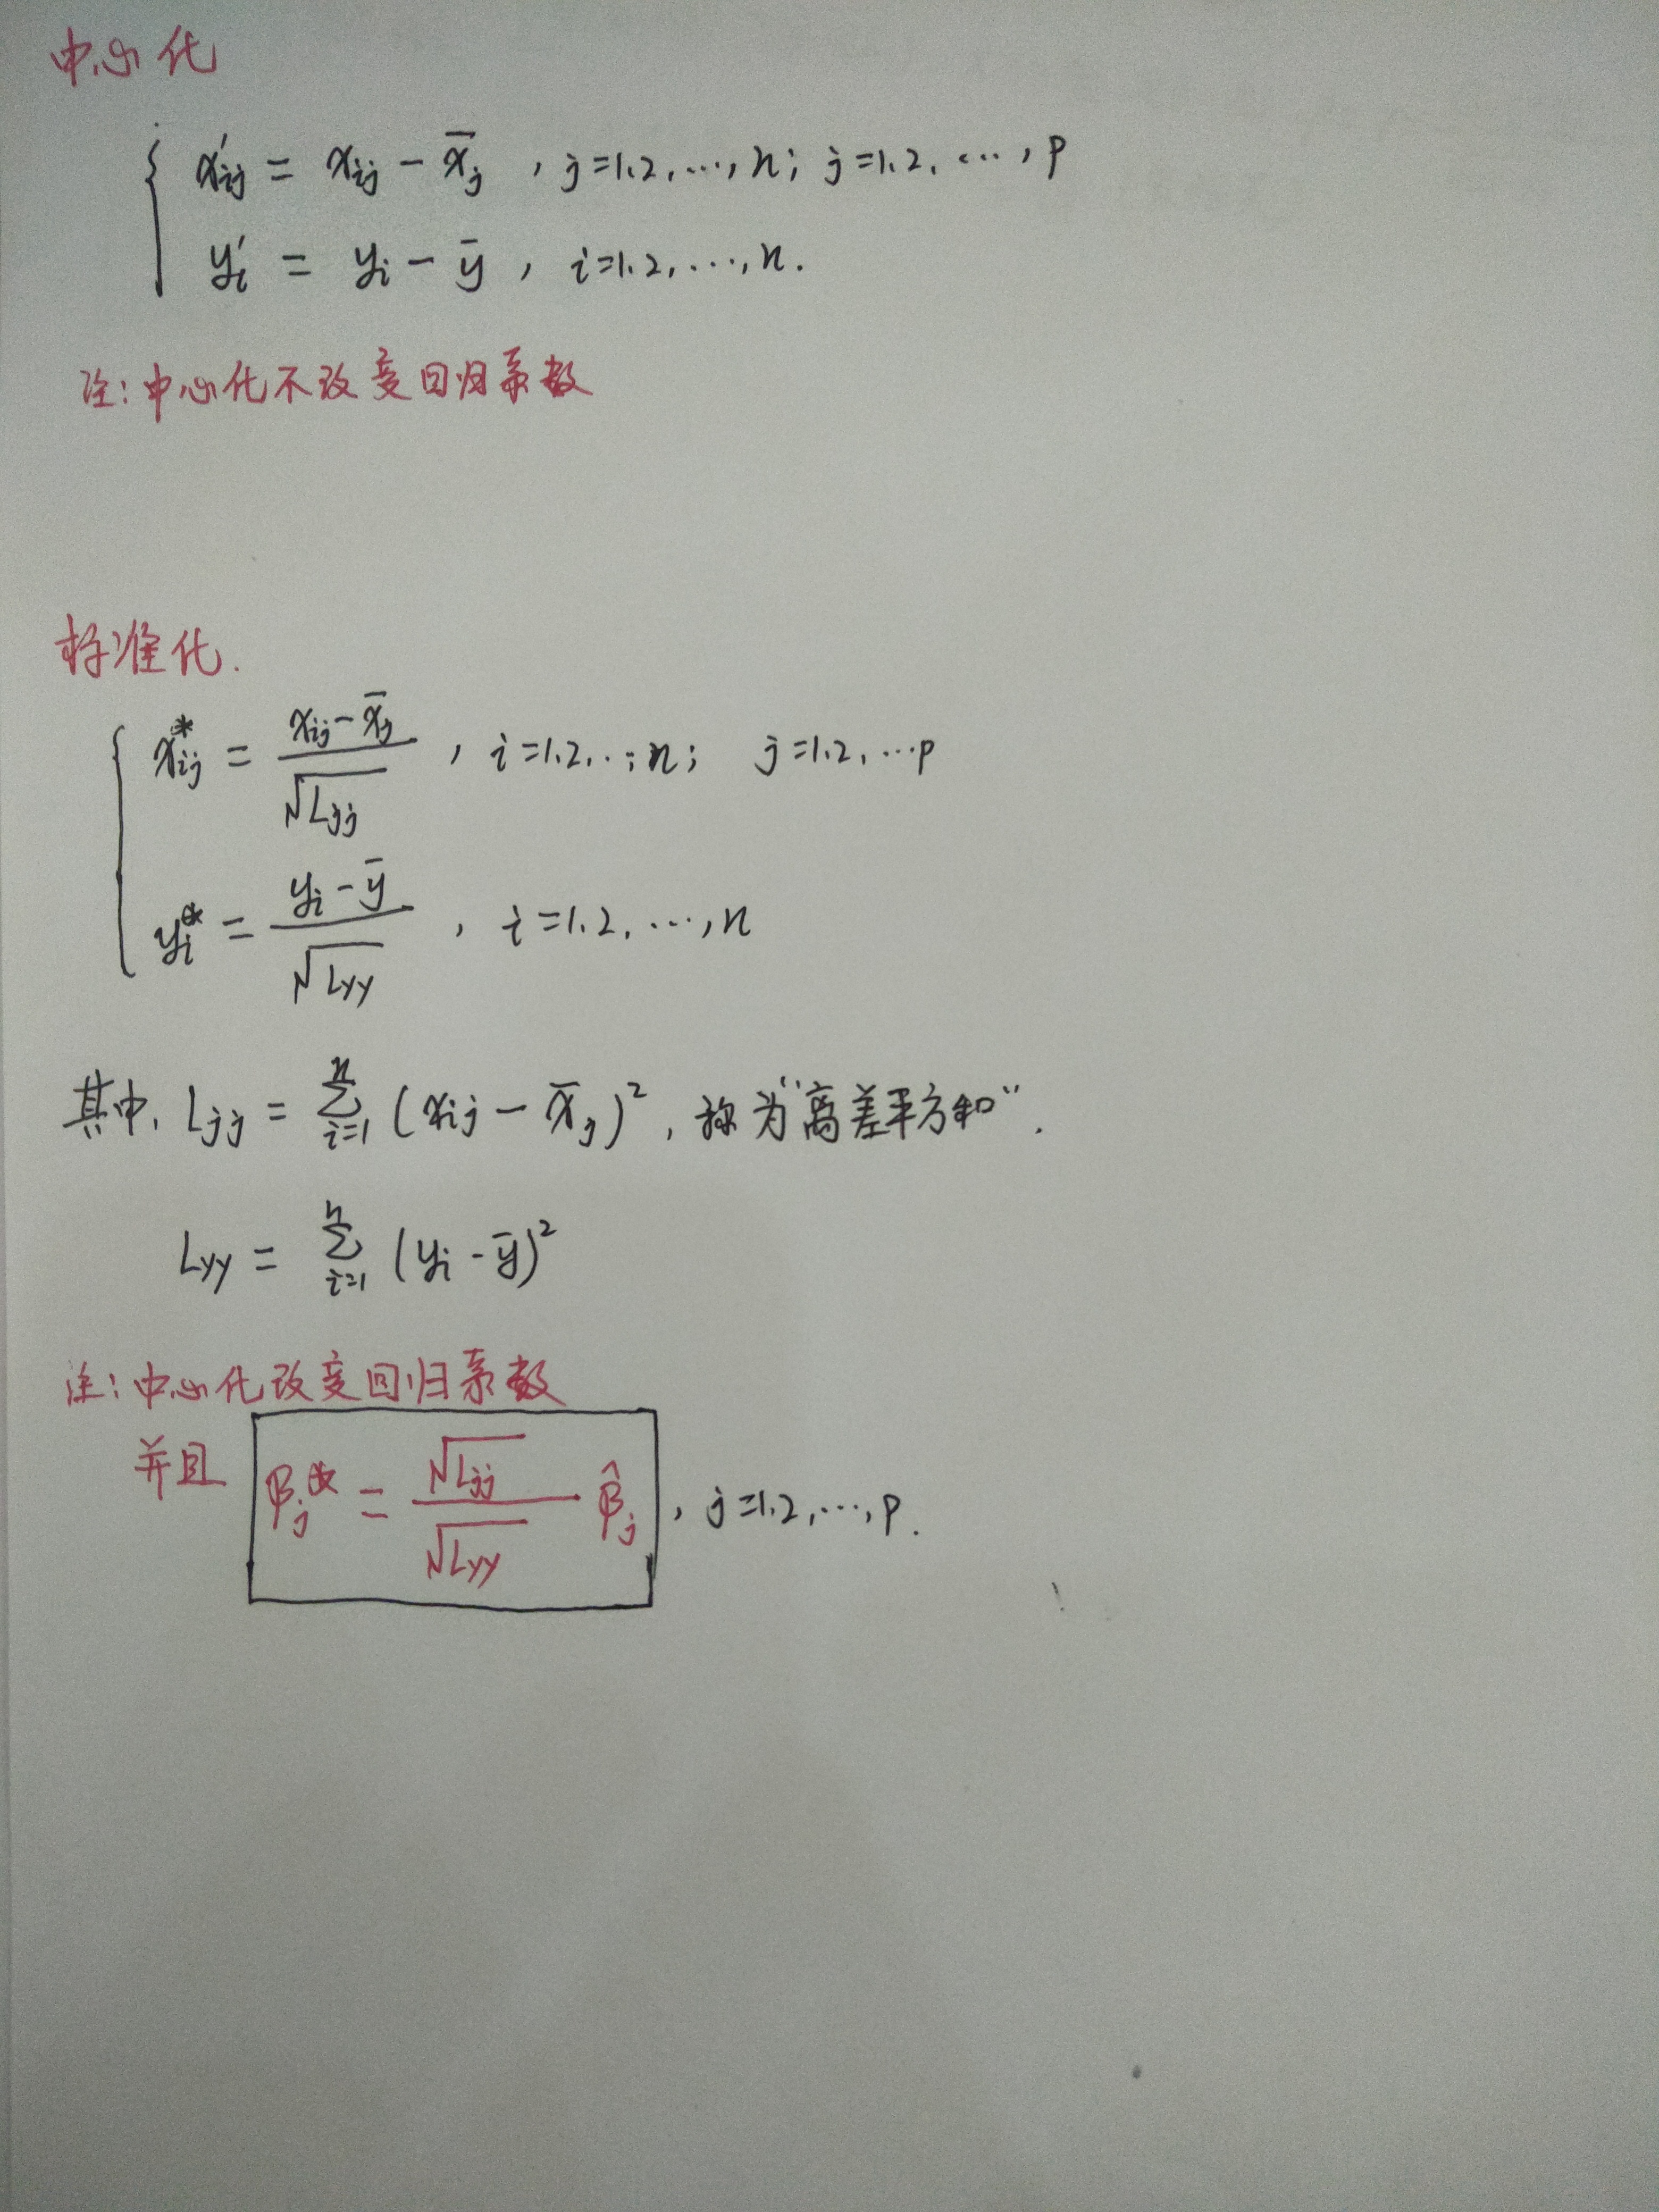 中心化
x'ij = xij − x̄j , j=1.2,…,n; j=1.2.…,p
y'i = yi − ȳ , i=1.2,…,n.
注:中心化不改变回归系数
标准化.
x*ij = (xij − x̄j)/√Ljj , i=1.2,..,n; j=1.2,…p
y*i = (yi − ȳ)/√Lyy , i=1.2.…,n
其中, Ljj = Σ(i=1→n) (xij − x̄j)², 称为"离差平方和".
Lyy = Σ(i=1→n) (yi − ȳ)²
注:中心化改变回归系数
并且 βj* = (√Ljj/√Lyy) β̂j , j=1.2,…,p.